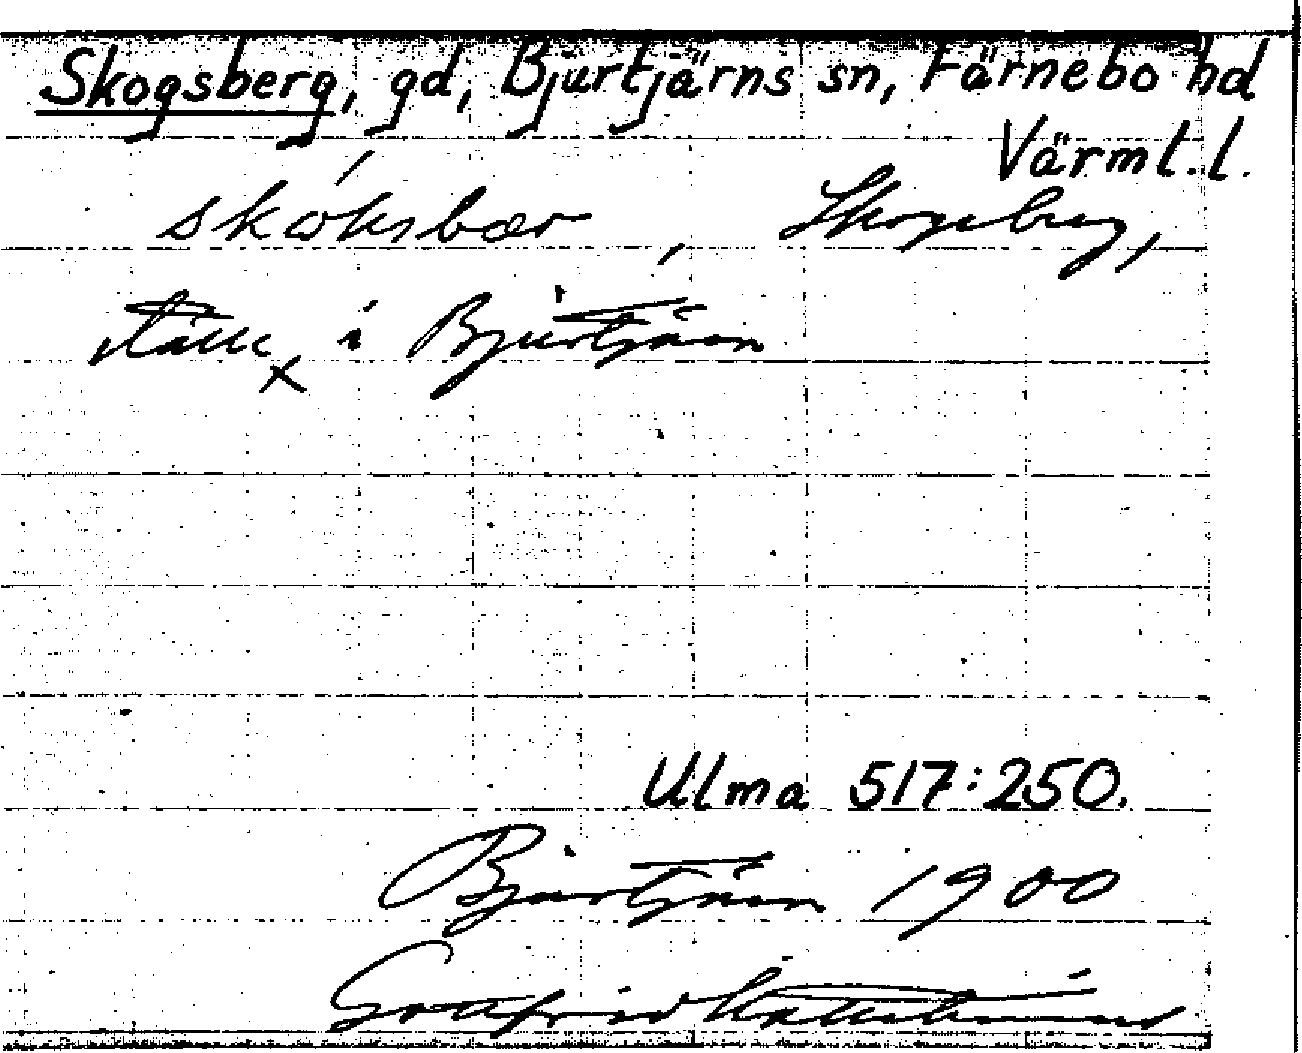 Skogsberg, gd, Bjurtjärns sn, Färnebo hd
Värml. l.
skóksbær, Skogsberg,
ställe i Bjurtjärn
x
Ulma 517:250.
Bjurtjärn 1900
Gottfrid Kallstenius